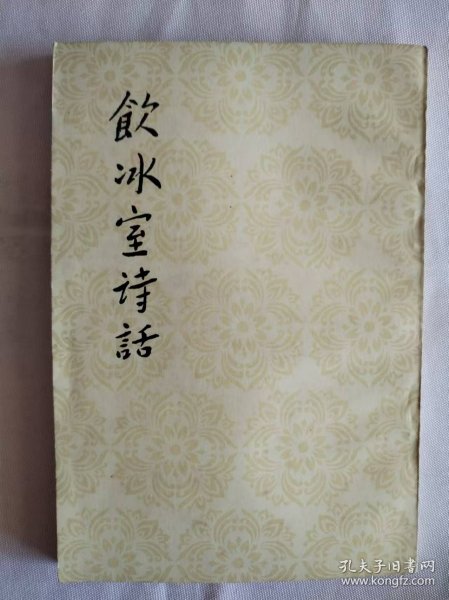 飲冰室詩話
孔夫子旧书网
www.kongfz.com